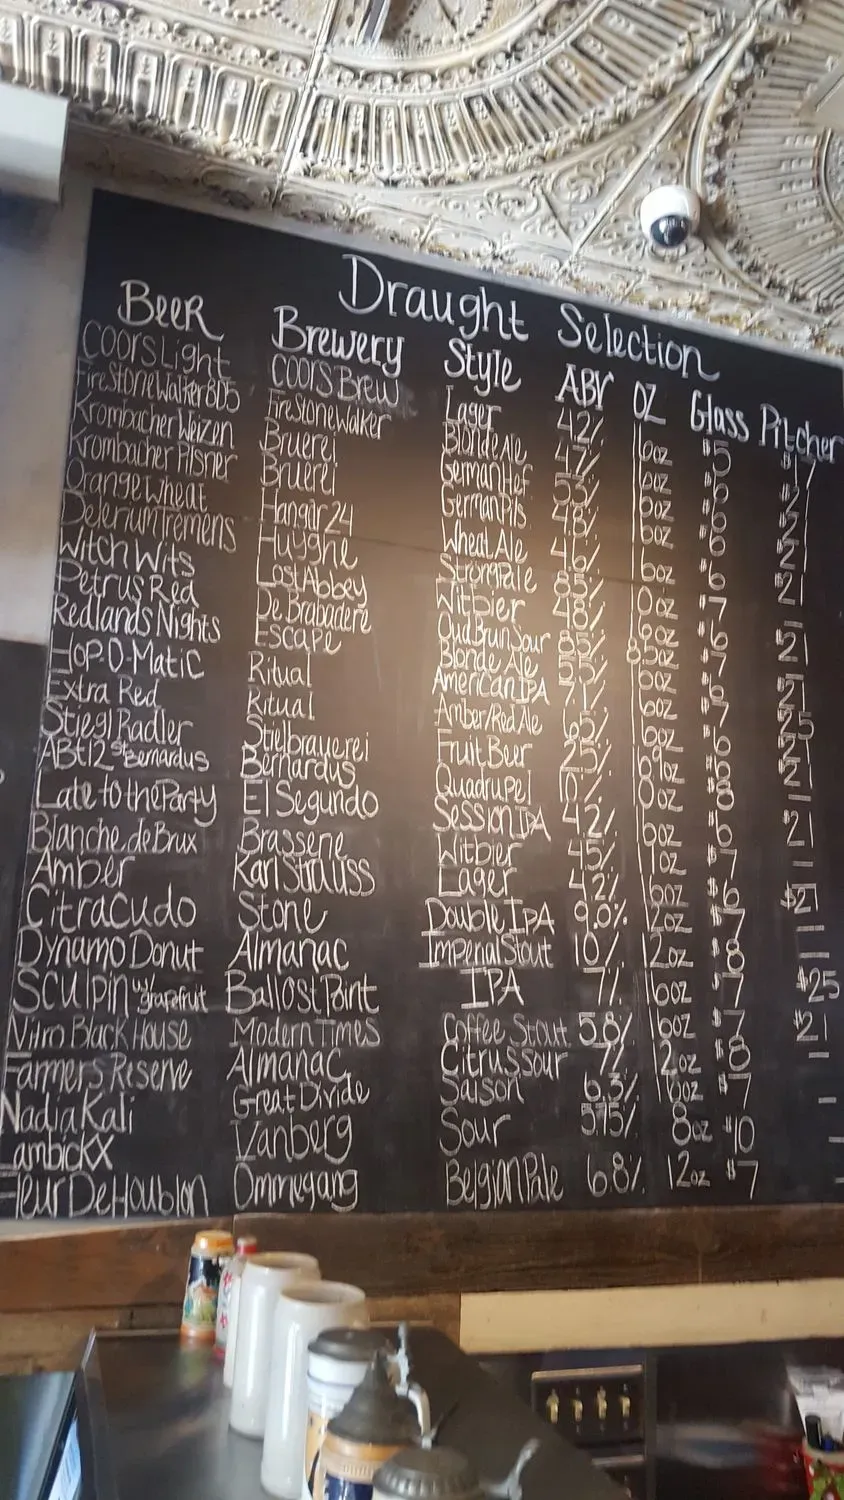 Draught Selection
Beer Brewery Style ABV OZ Glass Pitcher
Coors Light Coors Brew Lager 4.2% 16oz $5 $17
FireStoneWalker 805 FireStoneWalker Blonde Ale 4.7% 16oz $6 $21
Krombacher Weizen Bruerei German Hef 5.3% 16oz $6 $21
Krombacher Pilsner Bruerei German Pils 4.8% 16oz $6 $21
Orange Wheat Hangar 24 Wheat Ale 4.6% 16oz $6 $21
Delerium Tremens Huyghe Strong Pale 8.5% 10oz $7 —
Witch Wits Lost Abbey Witbier 4.8% 16oz $6 $21
Petrus Red De Brabadere Oud Brun Sour 8.5% 8.5oz $7 —
Redlands Nights Escape Blonde Ale 5.5% 16oz $6 $21
Hop-O-Matic Ritual American IPA 7.1% 16oz $7 $25
Extra Red Ritual Amber/Red Ale 6.5% 16oz $6 $21
Stiegl Radler Stielbrauerei Fruit Beer 2.5% $6 $21
ABt 12 St Bernardus Bernardus Quadrupel 10% 8oz $8 —
Late to the Party El Segundo Session IPA 4.2% 16oz $6 $21
Blanche de Brux Brasserie Witbier 4.5% $7 —
Amber Karl Strauss Lager 4.2% 16oz $6 $21
Citracudo Stone Double IPA 9.0% 12oz $7 —
Dynamo Donut Almanac Imperial Stout 10% 12oz $8 —
Sculpin w/ grapefruit Ballost Point IPA 7% 16oz $7 $25
Nitro Black House Modern Times Coffee Stout 5.8% 16oz $7 $21
Farmers Reserve Almanac Citrus sour 7% 12oz $8 —
Nadia Kali Great Divide Saison 6.3% 16oz $7 —
Lambickx Vanberg Sour 5.75% 8oz $10 —
Fleur De Houblon Ommegang Belgian Pale 6.8% 12oz $7